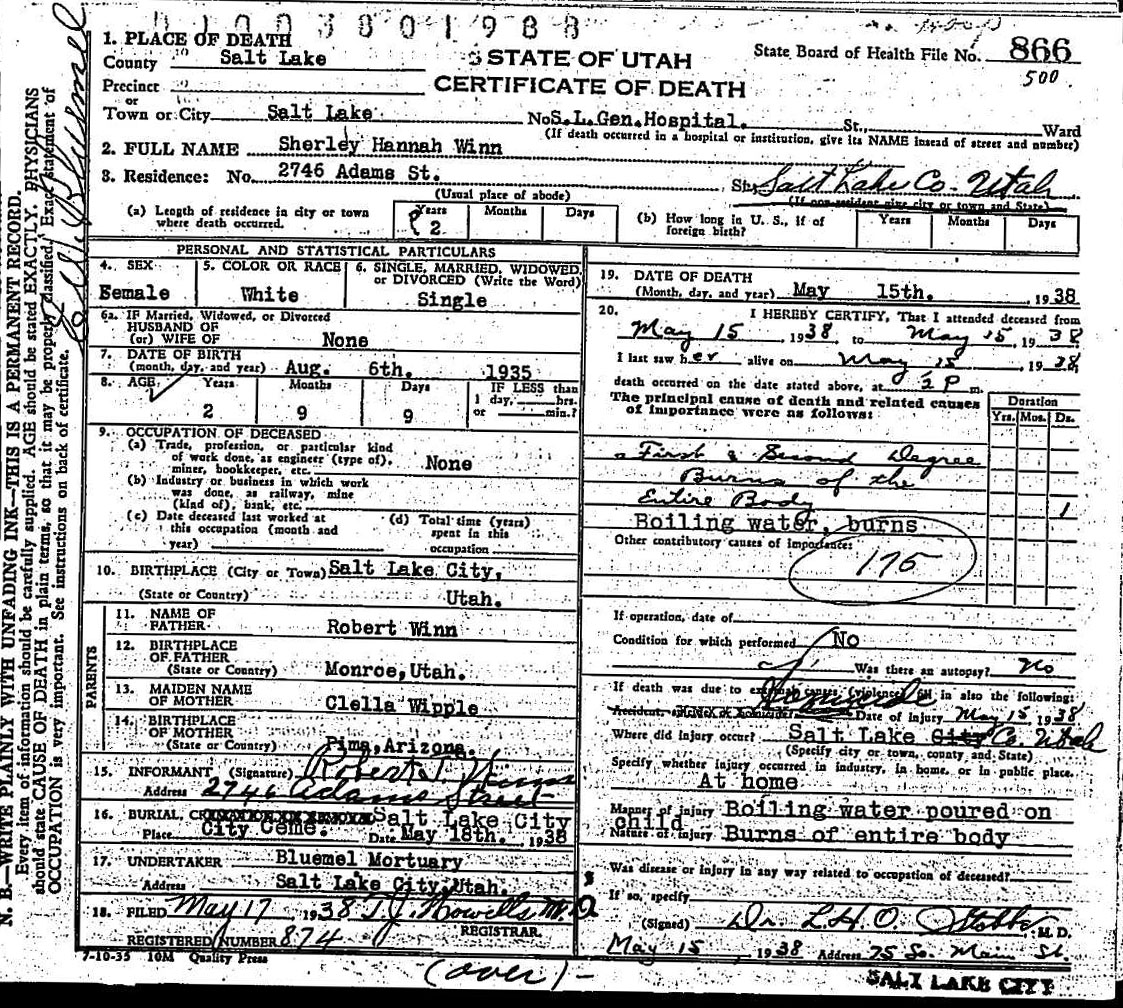 01003801988
1. PLACE OF DEATH
County Salt Lake
STATE OF UTAH
CERTIFICATE OF DEATH
State Board of Health File No. 866
500
Precinct
or
Town or City Salt Lake No. S.L.Gen.Hospital. St., Ward
(If death occurred in a hospital or institution, give its NAME instead of street and number)
2. FULL NAME Sherley Hannah Winn
3. Residence: No. 2746 Adams St. St. Salt Lake Co. Utah
(Usual place of abode) (If non-resident give city or town and State)
(a) Length of residence in city or town where death occurred. Years 2 Months Days
(b) How long in U. S., if of foreign birth? Years Months Days
PERSONAL AND STATISTICAL PARTICULARS
4. SEX Female
5. COLOR OR RACE White
6. SINGLE, MARRIED, WIDOWED, or DIVORCED (Write the Word) Single
6a. IF Married, Widowed, or Divorced
HUSBAND OF
(or) WIFE OF None
7. DATE OF BIRTH
(month, day, and year) Aug. 6th. 1935
8. AGE Years Months Days IF LESS than
1 day, hrs.
or min.?
2 9 9
9. OCCUPATION OF DECEASED
(a) Trade, profession, or particular kind
of work done, as engineer (type of),
miner, bookkeeper, etc. None
(b) Industry or business in which work
was done, as railway, mine
(kind of), bank, etc.
(c) Date deceased last worked at
this occupation (month and
year)
(d) Total time (years)
spent in this
occupation
10. BIRTHPLACE (City or Town) Salt Lake City,
(State or Country) Utah.
PARENTS
11. NAME OF
FATHER Robert Winn
12. BIRTHPLACE
OF FATHER
(State or Country) Monroe, Utah.
13. MAIDEN NAME
OF MOTHER Clella Wipple
14. BIRTHPLACE
OF MOTHER
(State or Country) Pima, Arizona.
15. INFORMANT (Signature) Robert Winn
Address 2746 Adams Street
16. BURIAL, Salt Lake City
Place City Ceme. Date May 18th. , 1938
17. UNDERTAKER Bluemel Mortuary
Address Salt Lake City, Utah.
18. FILED May 17 1938 T.J. Howells M.D
REGISTRAR.
REGISTERED NUMBER 874
7-10-35 10M Quality Press
19. DATE OF DEATH
(Month, day, and year) May 15th. , 1938
20. I HEREBY CERTIFY, That I attended deceased from
May 15 , 1938, to May 15, 1938
I last saw her alive on May 15 , 1938,
death occurred on the date stated above, at 2 P m.
The principal cause of death and related causes
of importance were as follows:
Duration
Yrs. Mos. Ds.
First & Second Degree
Burns of the
Entire Body 1
Boiling water, burns
Other contributory causes of importance:
175
If operation, date of
Condition for which performed No
Was there an autopsy? No
If death was due to external causes (violence) fill in also the following:
Accident, suicide, or homicide? Homicide Date of injury May 15 1938
Where did injury occur? Salt Lake City Co. Utah
(Specify city or town, county and State)
Specify whether injury occurred in industry, in home, or in public place.
At home
Manner of injury Boiling water poured on
child
Nature of injury Burns of entire body
Was disease or injury in any way related to occupation of deceased?
If so, specify
(Signed) Dr. L.H.O. Stobbe M. D.
May 15 , 1938 Address 75 So. Main St.
SALT LAKE CITY
(over)-
N. B.—WRITE PLAINLY WITH UNFADING INK—THIS IS A PERMANENT RECORD.
Every item of information should be carefully supplied. AGE should be stated EXACTLY. PHYSICIANS
should state CAUSE OF DEATH in plain terms, so that it may be properly classified. Exact statement of
OCCUPATION is very important. See instructions on back of certificate.